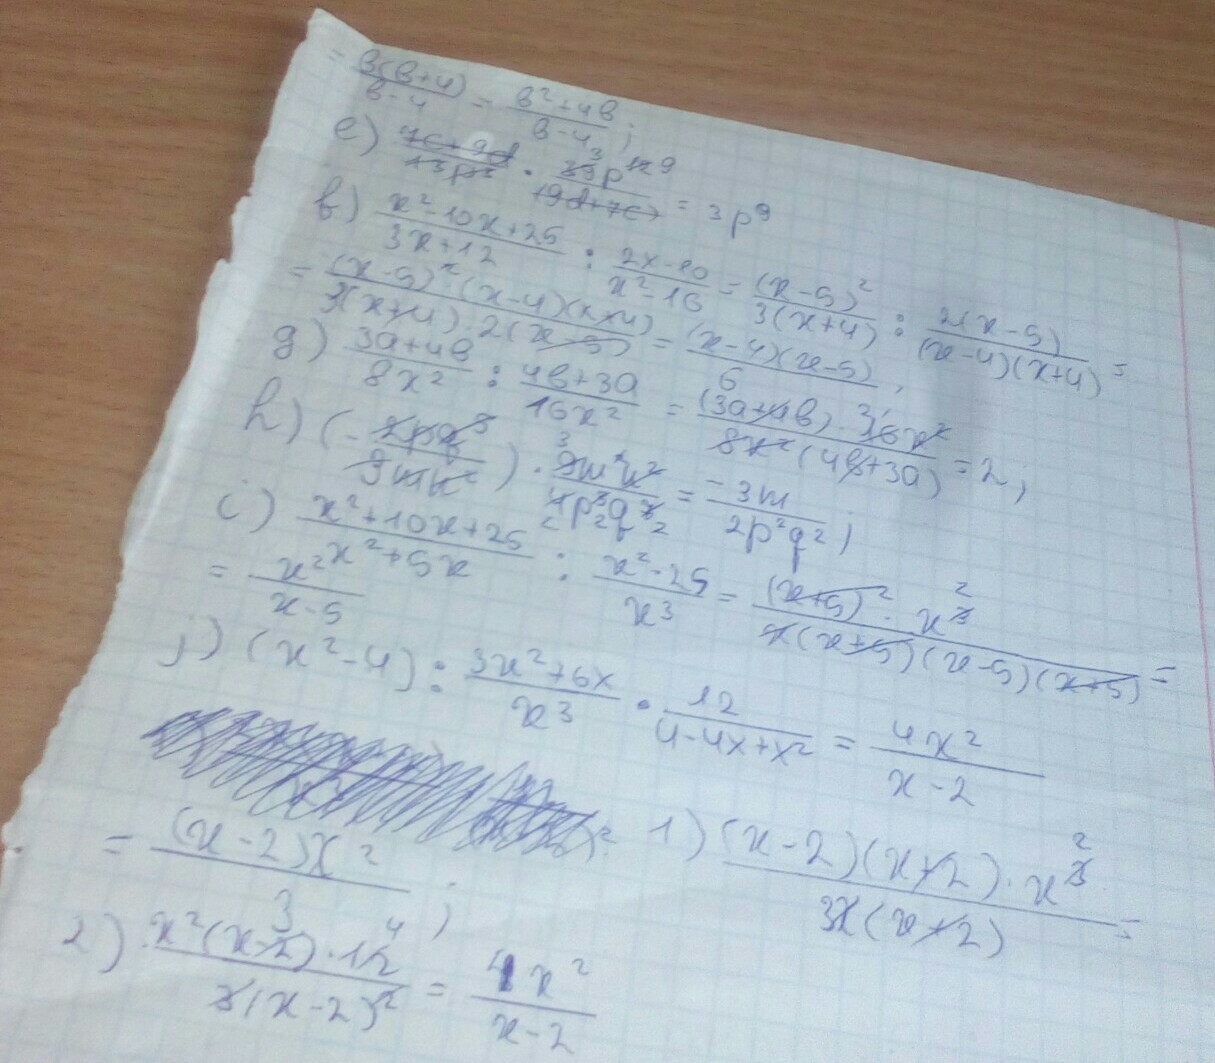 = в(в+4)/в-4 = в²+4в/в-4;
e) 7c+9d/13p³ · 39p¹² 3 9/(9d+7c) = 3p⁹
f) x²-10x+25/3x+12 : 2x-10/x²-16 = (x-5)²/3(x+4) : 2(x-5)/(x-4)(x+4) =
= (x-5)²(x-4)(x+4)/3(x+4)·2(x-5) = (x-4)(x-5)/6,
g) 3a+4в/8x² : 4в+3a/16x² = (3a+4в)·16x²/8x²(4в+3a) = 2,
h) (- 2pq³/3mn²) · 9m²n² 3/4p³q⁵ 2 2 2 = -3m/2p²q²;
i) x²+10x+25/x²+5x : x²-25/x³ = (x+5)²·x³ 2/x(x+5)(x-5)(x+5) =
= x²/x-5
j) (x²-4) : 3x²+6x/x³ · 12/4-4x+x² = 4x²/x-2
1) (x-2)(x+2)·x³ 2/3x(x+2) =
= (x-2)x²/3;
2) x²(x-2)·12 4/3(x-2)² = 4x²/x-2